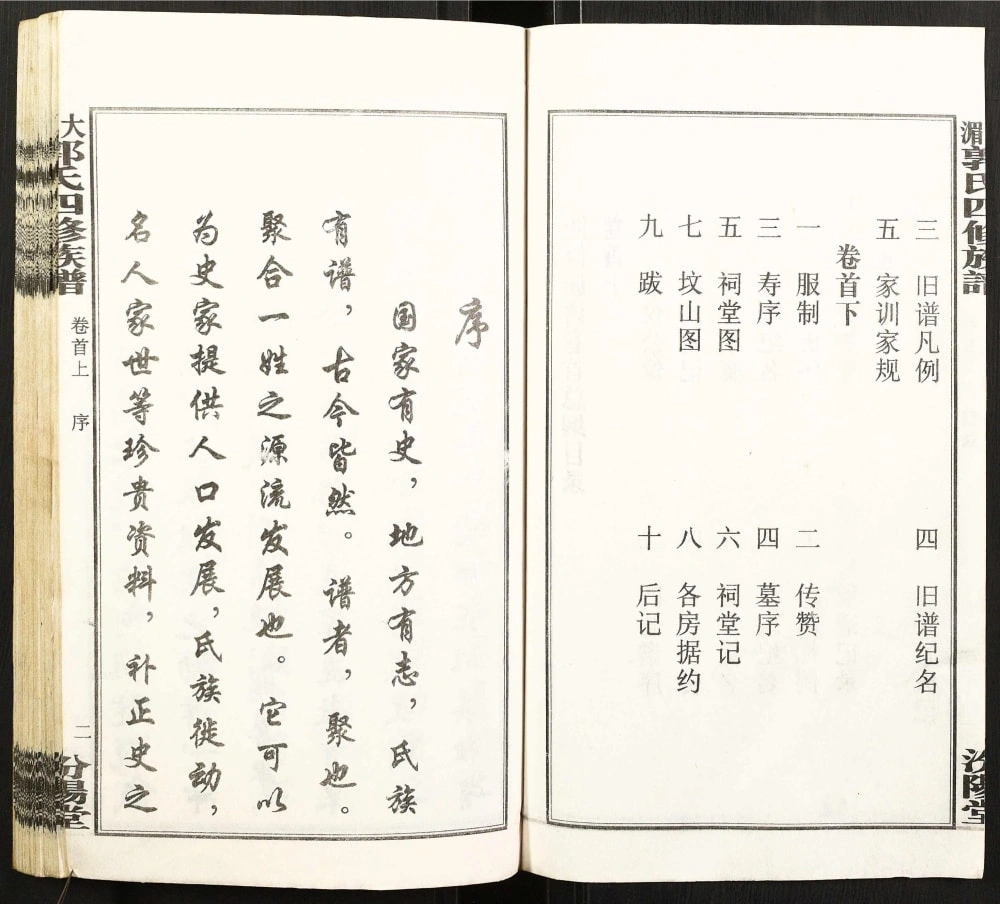 湄郭氏四修族譜
汾陽堂
三 旧谱凡例 四 旧谱纪名
五 家训家规
卷首下
一 服制 二 传赞
三 寿序 四 墓序
五 祠堂图 六 祠堂记
七 坟山图 八 各房据约
九 跋 十 后记
序
国家有史，地方有志，氏族
有谱，古今皆然。谱者，聚也。
聚合一姓之源流发展也。它可以
为史家提供人口发展，氏族徙动，
名人家世等珍贵资料，补正史之
大郭氏四修族谱
卷首上 序
二
汾陽堂